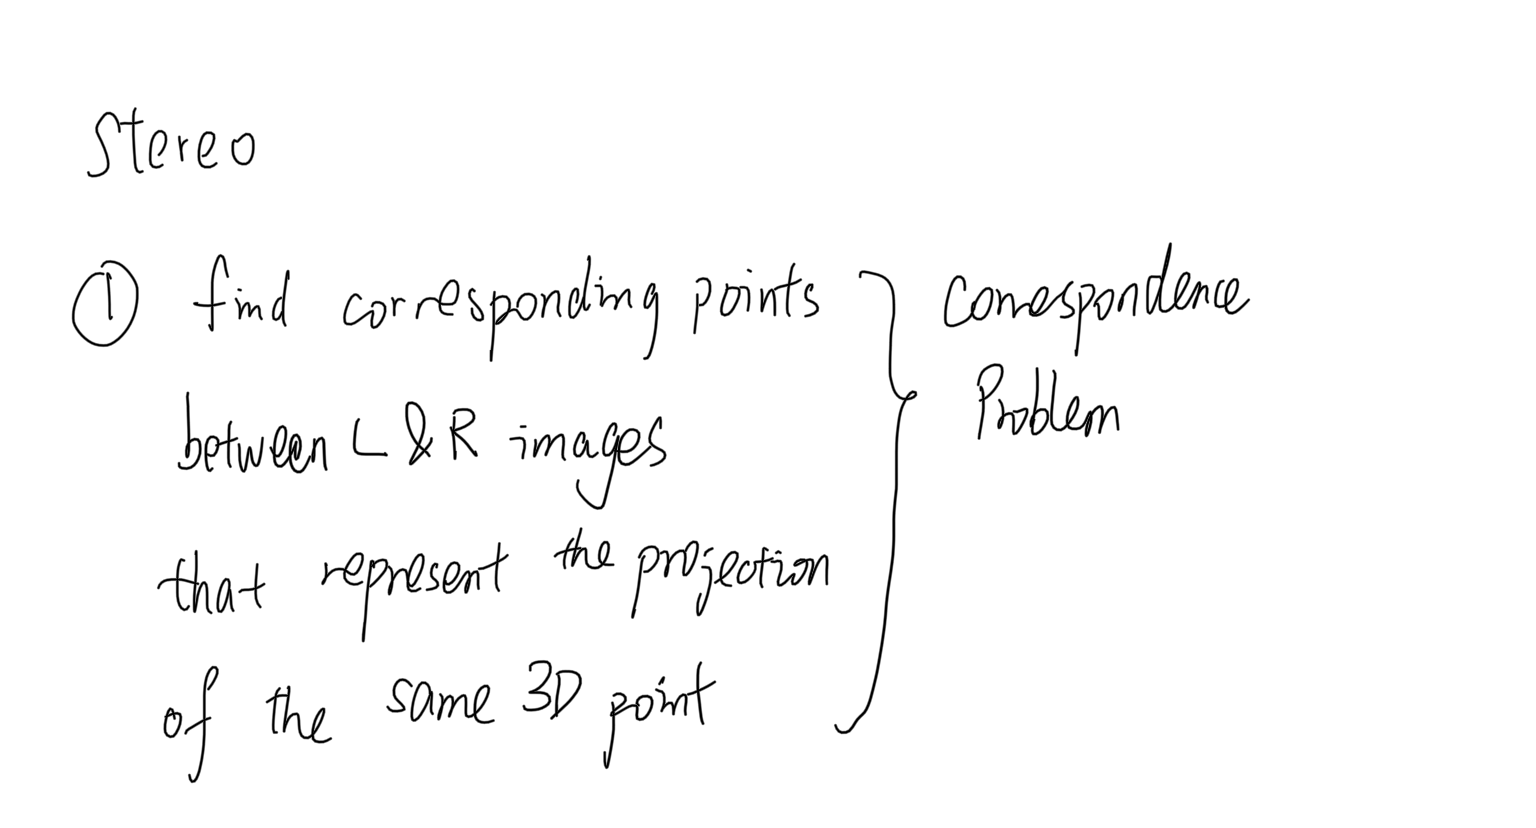 Stereo
① find corresponding points
between L & R images
that represent the projection
of the same 3D point
Correspondence
Problem